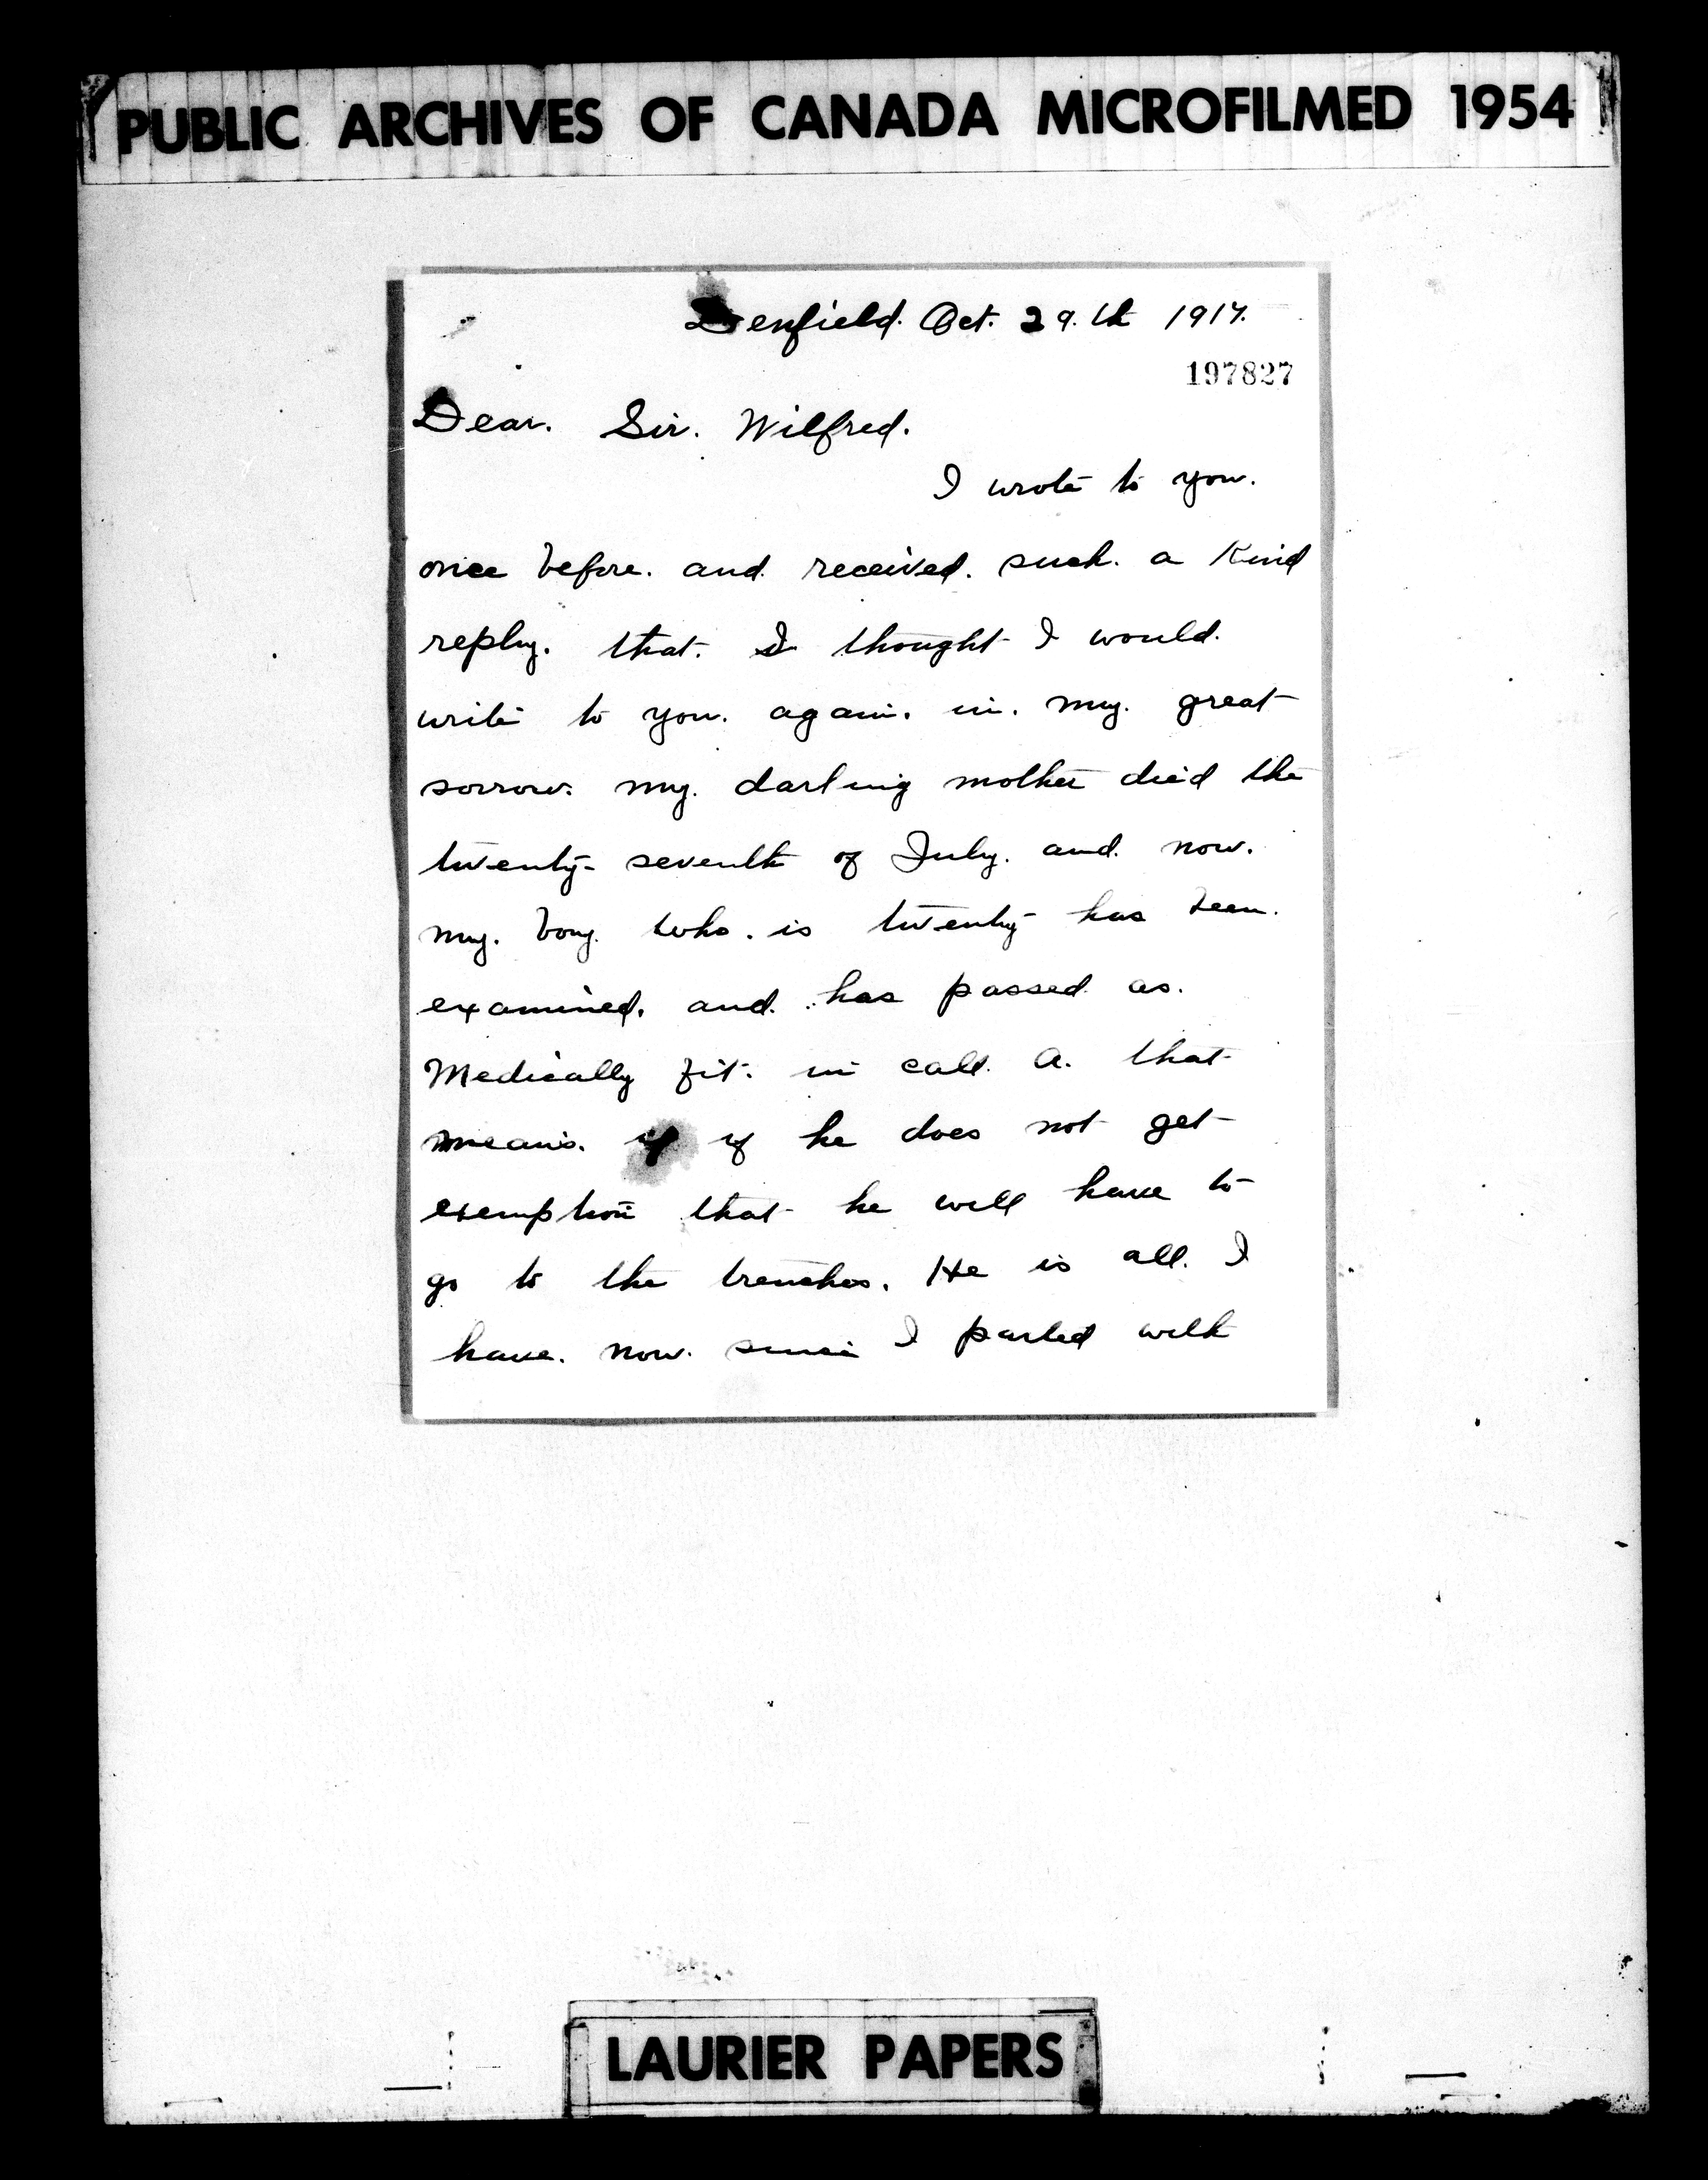 PUBLIC ARCHIVES OF CANADA MICROFILMED 1954
Denfield. Oct. 29.th 1917.
197827
Dear. Sir. Wilfred.
I wrote to you.
once before. and. received. such. a Kind
reply. that. I thought I would.
write to you. again. in. my. great
sorrow. my. darling mother died the
twenty-seventh of July. and. now.
my. boy. who. is twenty has been.
examined. and. has passed as.
Medically fit. in call. A. that
means. if if he does not get
exemption that he will have to
go to the trenches. He is all. I
have. now. since I parted with
LAURIER PAPERS